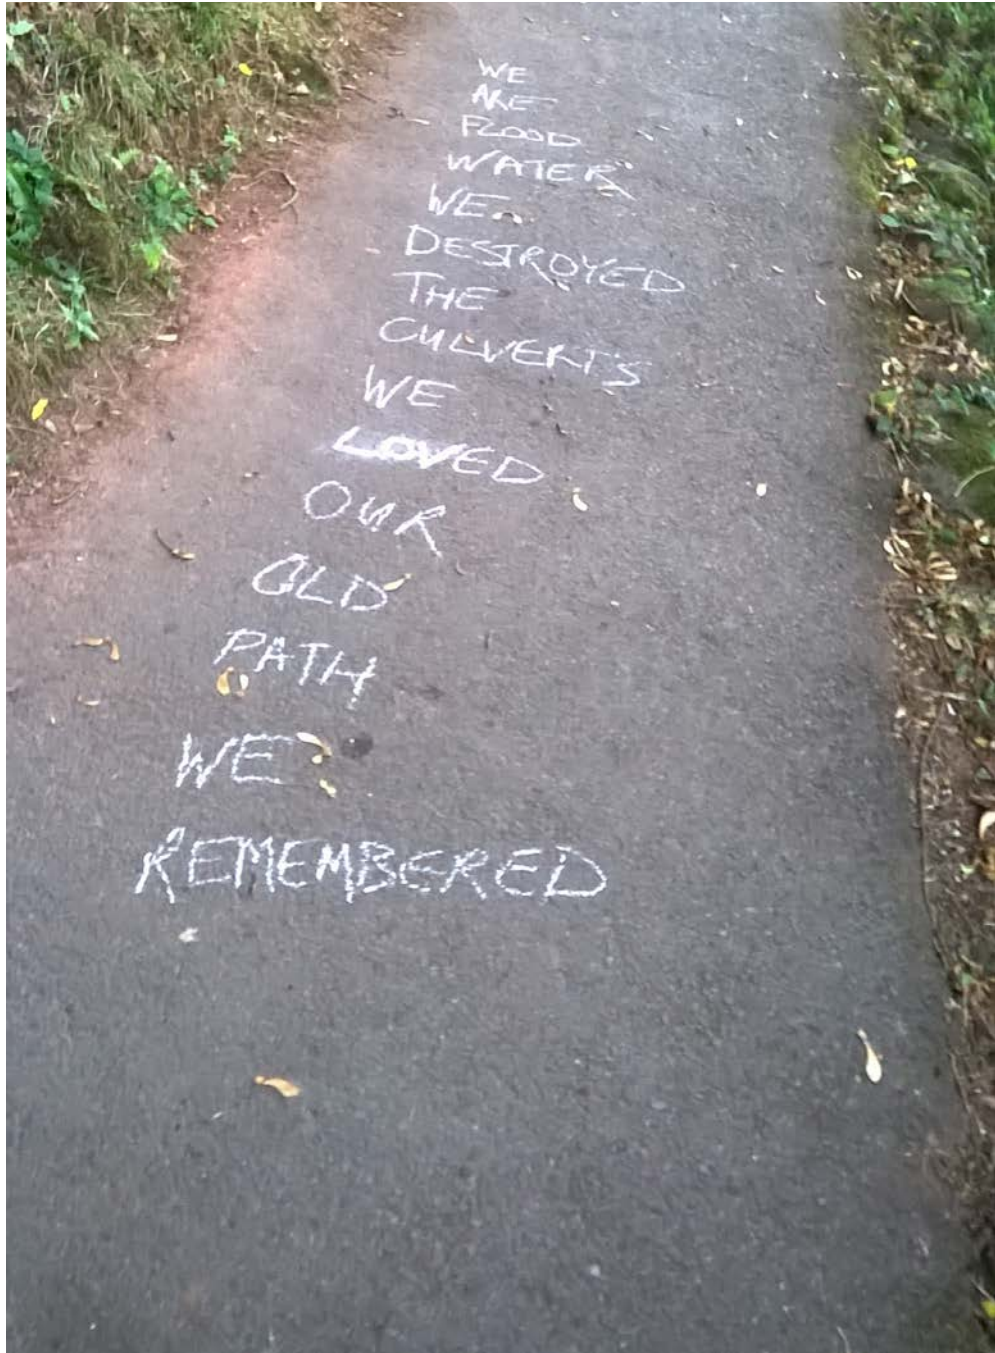 WE
ARE
FLOOD
WATER
WE
DESTROYED
THE
CULVERT'S
WE
LOVED
OUR
OLD
PATH
WE
REMEMBERED